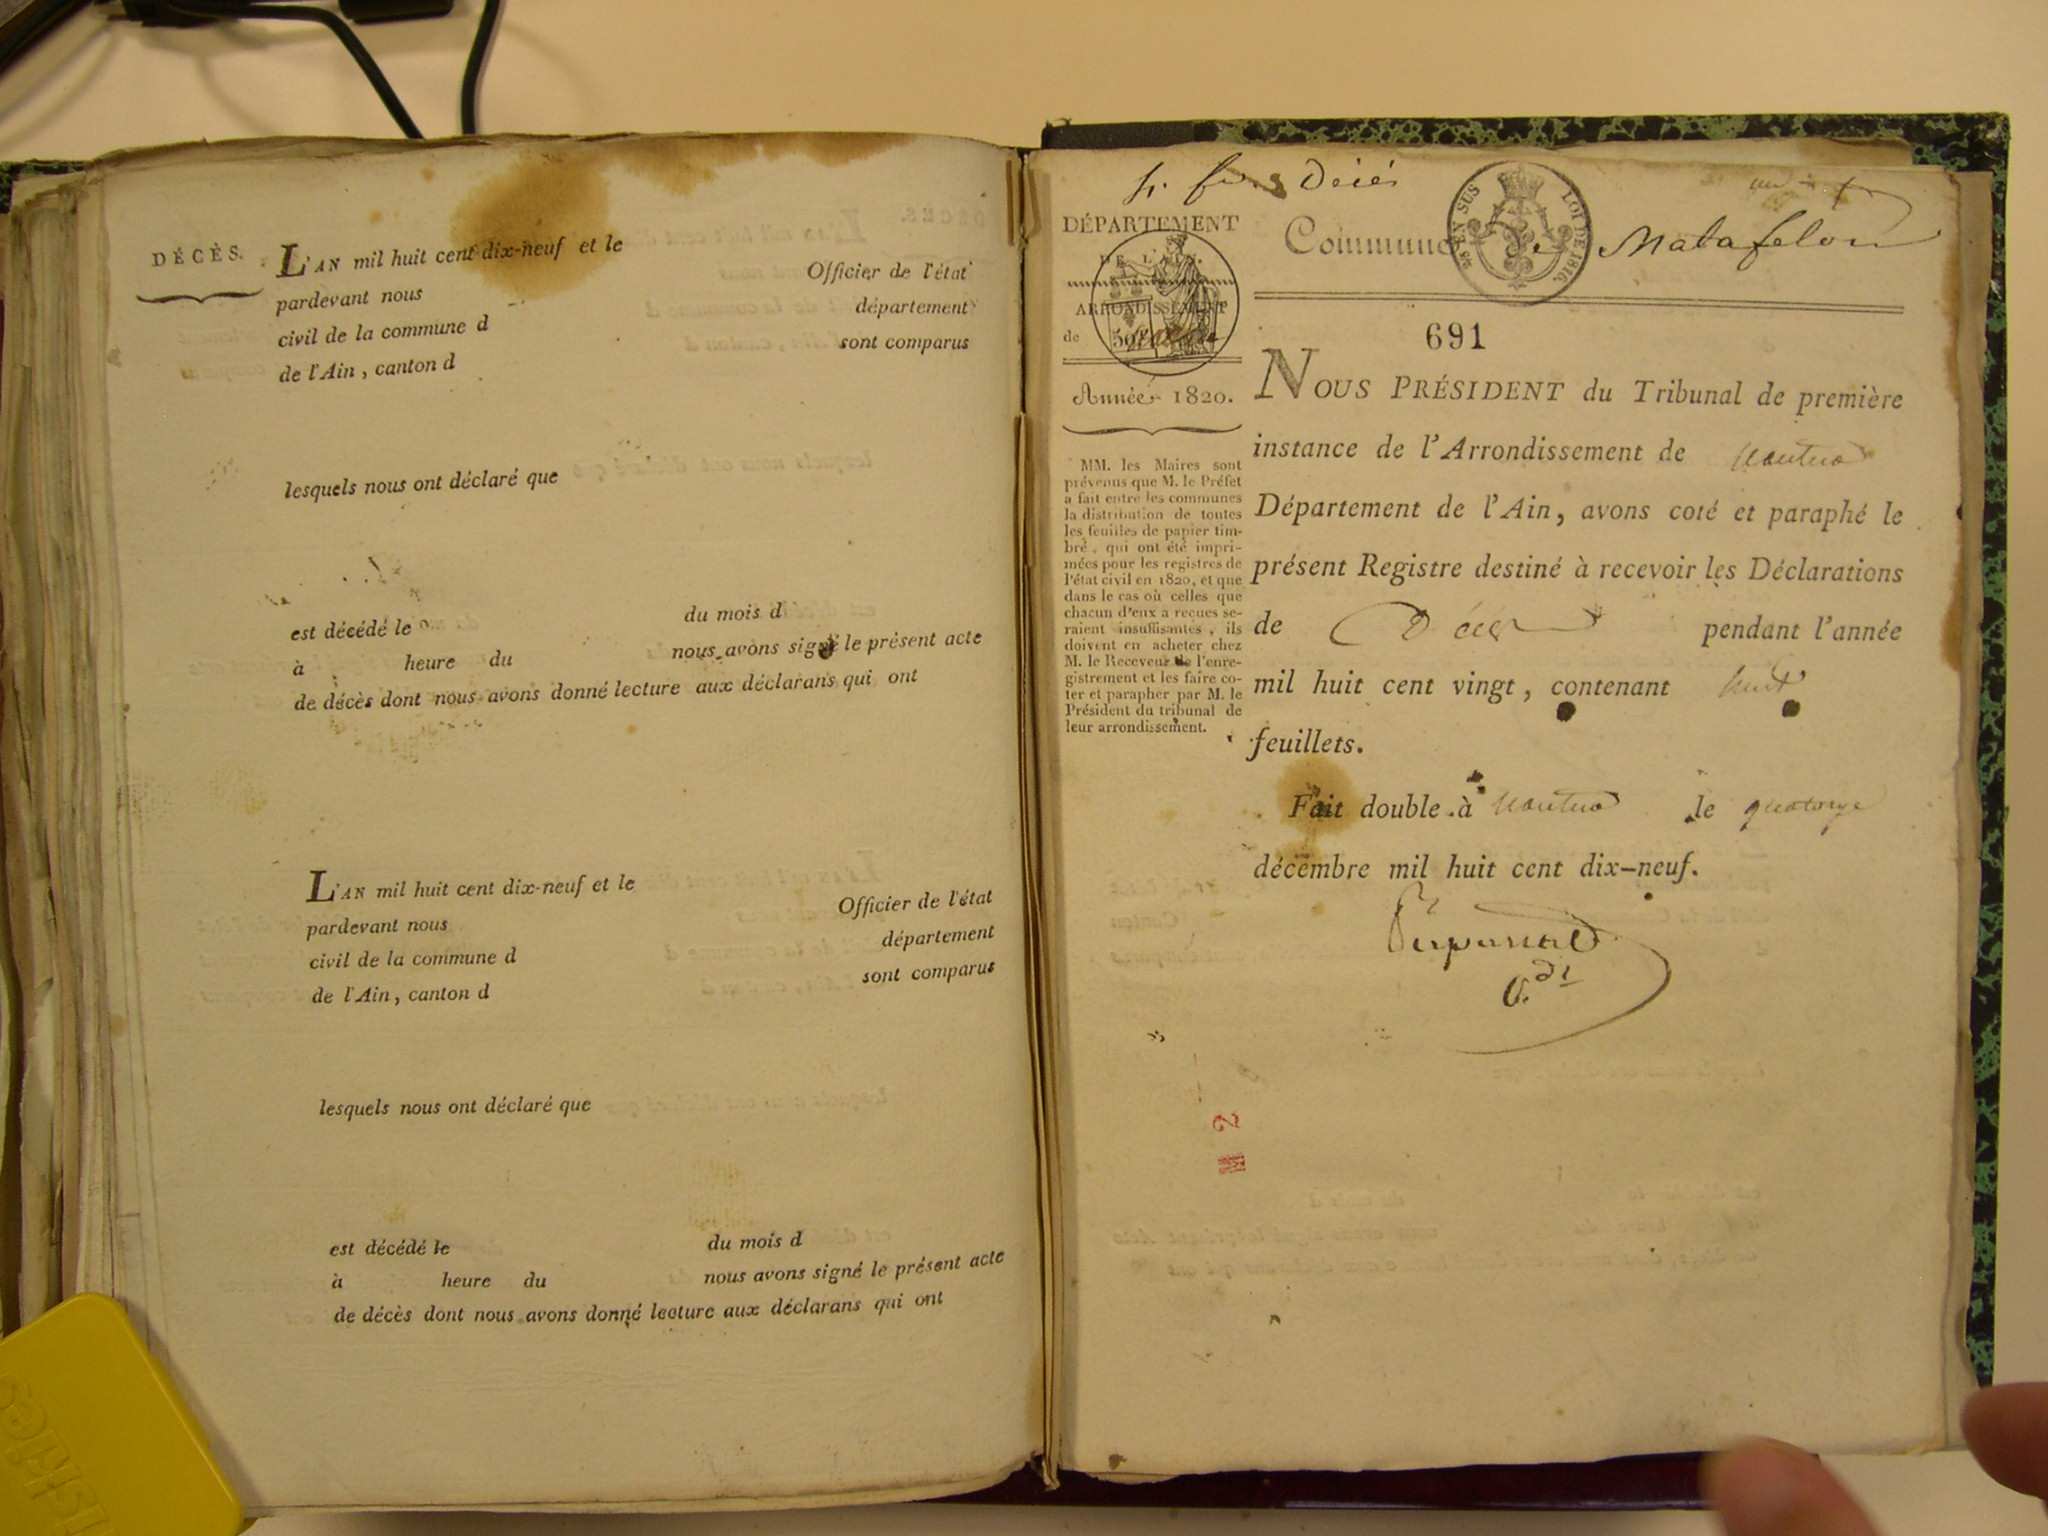 DÉCÈS.
L'AN mil huit cent dix-neuf et le
pardevant nous Officier de l'état
civil de la commune d département
de l'Ain, canton d sont comparus
lesquels nous ont déclaré que
est décédé le du mois d
à heure du nous avons signé le présent acte
de décès dont nous avons donné lecture aux déclarans qui ont
L'AN mil huit cent dix-neuf et le
pardevant nous Officier de l'état
civil de la commune d département
de l'Ain, canton d sont comparus
lesquels nous ont déclaré que
est décédé le du mois d
à heure du nous avons signé le présent acte
de décès dont nous avons donné lecture aux déclarans qui ont
Décés
DÉPARTEMENT
DE L'AIN.
ARRONDISSEMENT
de
Année 1820.
MM. les Maires sont
prévenus que M. le Préfet
a fait entre les communes
la distribution de toutes
les feuilles de papier tim-
bré, qui ont été impri-
mées pour les registres de
l'état civil en 1820, et que
dans le cas où celles que
chacun d'eux a reçues se-
raient insuffisantes, ils
doivent en acheter chez
M. le Receveur de l'enre-
gistrement et les faire co-
ter et parapher par M. le
Président du tribunal de
leur arrondissement.
Commune de Matafelon
EN SUS LOI DE 1816
691
NOUS PRÉSIDENT du Tribunal de première
instance de l'Arrondissement de Nantua
Département de l'Ain, avons coté et paraphé le
présent Registre destiné à recevoir les Déclarations
de Décès pendant l'année
mil huit cent vingt, contenant huit
feuillets.
Fait double à Nantua le quatorze
décembre mil huit cent dix-neuf.
2